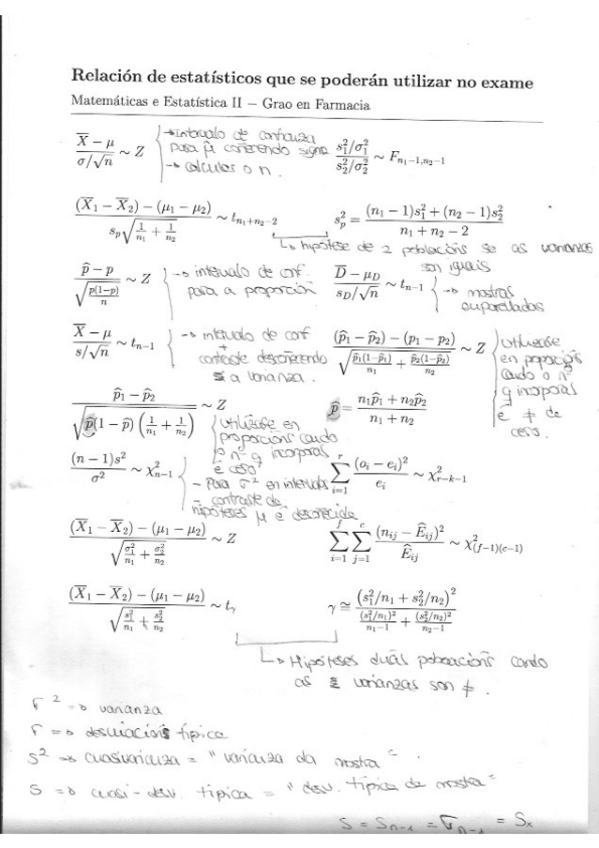 Relación de estatísticos que se poderán utilizar no exame
Matemáticas e Estatística II – Grao en Farmacia
(X̄ − μ)/(σ/√n) ∼ Z
→ intervalo de confianza
para μ coñecendo sigma
→ calculos o n.
(s₁²/σ₁²)/(s₂²/σ₂²) ∼ F_{n₁−1,n₂−1}
((X̄₁ − X̄₂) − (μ₁ − μ₂))/(s_p√(1/n₁ + 1/n₂)) ∼ t_{n₁+n₂−2}
s_p² = ((n₁ − 1)s₁² + (n₂ − 1)s₂²)/(n₁ + n₂ − 2)
↳ hipótese de 2 poblacións se as varianzas
son iguais
(p̂ − p)/√(p(1−p)/n) ∼ Z
→ intervalo de conf.
para a proporción
(D̄ − μ_D)/(s_D/√n) ∼ t_{n−1}
→ mostras
emparelladas
(X̄ − μ)/(s/√n) ∼ t_{n−1}
→ intervalo de conf
+ contraste descoñecendo
a varianza.
((p̂₁ − p̂₂) − (p₁ − p₂))/√(p̂₁(1−p̂₁)/n₁ + p̂₂(1−p̂₂)/n₂) ∼ Z
Utilízase
en proporcións
cando o nº
q incorporas
é ≠ de
cero.
(p̂₁ − p̂₂)/√(p̂(1 − p̂)(1/n₁ + 1/n₂)) ∼ Z
Utilízase en
proporcións cando
o nº q incorporas
é cero
p̂ = (n₁p̂₁ + n₂p̂₂)/(n₁ + n₂)
(n − 1)s²/σ² ∼ χ²_{n−1}
- Para σ² en intervalos
- contraste de
hipóteses μ é descoñecida
∑_{i=1}^{r} (o_i − e_i)²/e_i ∼ χ²_{r−k−1}
((X̄₁ − X̄₂) − (μ₁ − μ₂))/√(σ₁²/n₁ + σ₂²/n₂) ∼ Z
∑_{i=1}^{f} ∑_{j=1}^{c} (n_{ij} − Ê_{ij})²/Ê_{ij} ∼ χ²_{(f−1)(c−1)}
((X̄₁ − X̄₂) − (μ₁ − μ₂))/√(s₁²/n₁ + s₂²/n₂) ∼ t_γ
γ ≅ (s₁²/n₁ + s₂²/n₂)²/((s₁²/n₁)²/(n₁−1) + (s₂²/n₂)²/(n₂−1))
↳ Hipóteses dúas poboacións cando
as 2 varianzas son ≠.
σ² ⇒ varianza
σ ⇒ desviación típica
s² ⇒ cuasivarianza = "varianza da mostra"
s ⇒ cuasi-desv. típica = "desv. típica de mostra"
S = S_{n−1} = σ_{n−1} = S_x